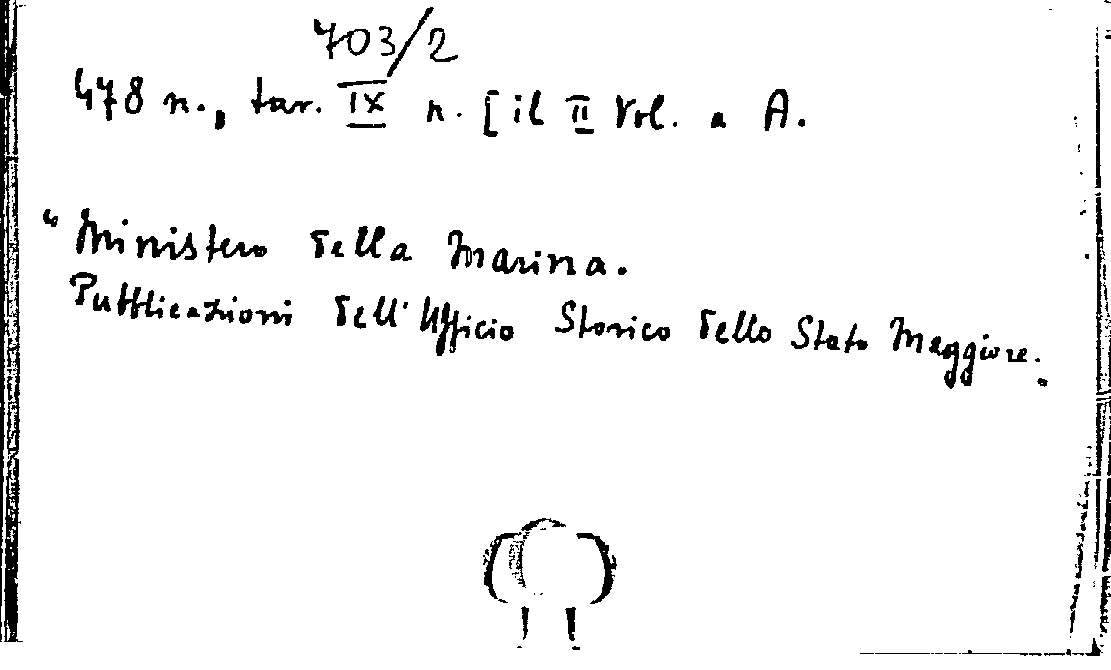 703/2
478 n., tav. IX n. [il II Vol. a A.
"Ministero della Marina.
Pubblicazioni dell'Ufficio Storico dello Stato Maggiore.